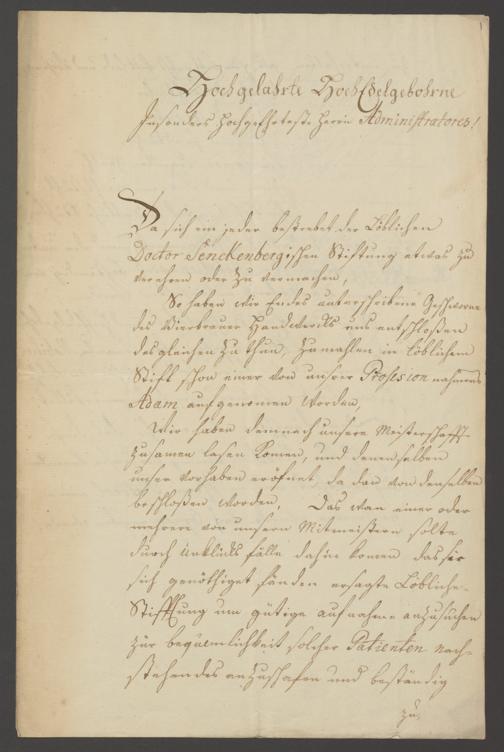 Hochgelahrte HochEdelgebohrne
Insonders hochgeEhrteste Herrn Administratores!
Da sich ein jeder bestrebet der Löblichen
Doctor Senckenbergischen Stiftung etwas zu
verehren oder zu vermachen,
So haben wir Endes unterschribene Geschworne
des Bierbrauer Handwercks uns entschloßen
desgleichen zu thun, zumahlen in Löblichem
Stift schon einer von unsrer Profesion nahmens
Adam, aufgenomen worden,
Wir haben demnach unsere Meisterschafft
zusamen lasen komen, und denenselben
unser vorhaben eröfnet, da dan von denselben
beschloßen worden, Das wan einer oder
mehrere von unsern Mitmeistern solte
durch unklücks fälle dahin komen das sie
sich genöthiget fänden ersagte Löbliche
Stifftung um gütige aufnahme anzusuchen
zur bequemlichkeit solcher Patienten nach-
stehendes anzushafen und beständig
zu